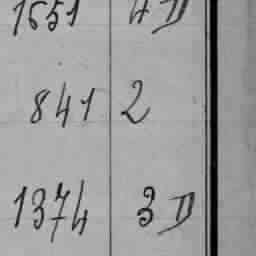 1651 4 D
841 2
1374 3 D